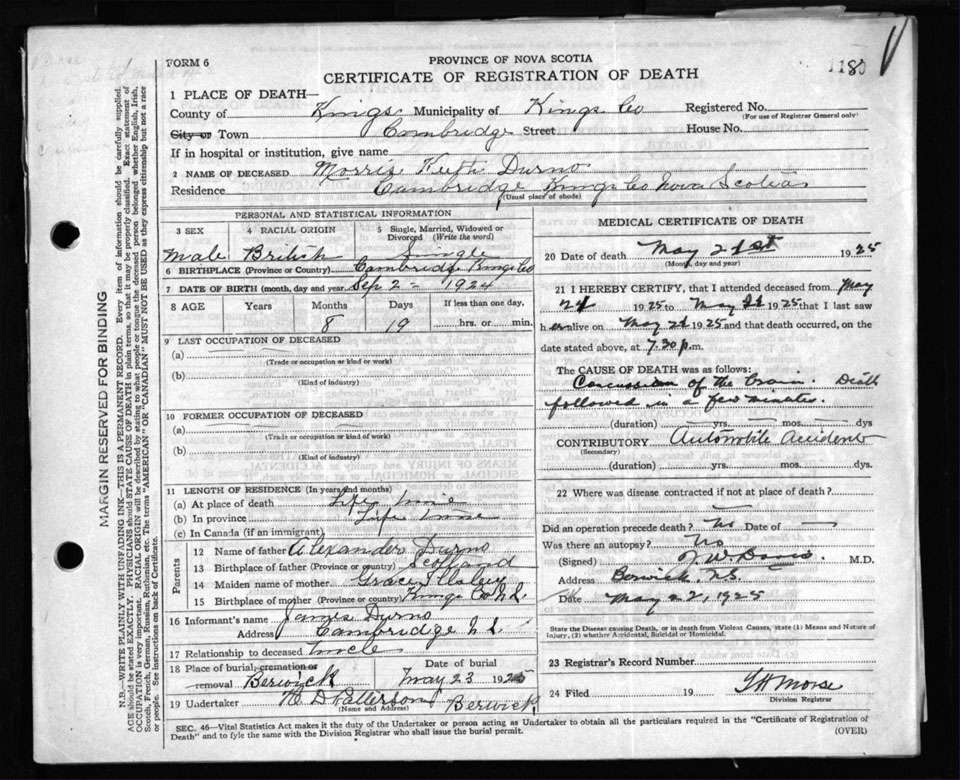 FORM 6
PROVINCE OF NOVA SCOTIA
1180
CERTIFICATE OF REGISTRATION OF DEATH
1 PLACE OF DEATH—
County of Kings Municipality of Kings Co Registered No.
(For use of Registrar General only)
City or Town Cambridge Street House No.
If in hospital or institution, give name
2 NAME OF DECEASED Morris Keith Durno
Residence Cambridge Kings Co Nova Scotia
(Usual place of abode)
PERSONAL AND STATISTICAL INFORMATION
3 SEX 4 RACIAL ORIGIN 5 Single, Married, Widowed or
Divorced (Write the word)
Male British Single
6 BIRTHPLACE (Province or Country) Cambridge Kings Co
7 DATE OF BIRTH (month, day and year) Sep 2 - 1924
8 AGE Years Months Days If less than one day,
8 19 hrs. or min.
9 LAST OCCUPATION OF DECEASED
(a)
(Trade or occupation or kind or work)
(b)
(Kind of industry)
10 FORMER OCCUPATION OF DECEASED
(a)
(Trade or occupation or kind of work)
(b)
(Kind of industry)
11 LENGTH OF RESIDENCE (In years and months)
(a) At place of death Life time
(b) In province Life time
(c) In Canada (if an immigrant)
Parents
12 Name of father Alexander Durno
13 Birthplace of father (Province or country) Scotland
14 Maiden name of mother Grace Illsley
15 Birthplace of mother (Province or country) Kings Co N.S.
16 Informant's name James Durno
Address Cambridge N.S.
17 Relationship to deceased Uncle
18 Place of burial, cremation or Date of burial
removal Berwick May 23 1925
19 Undertaker Patterson Berwick
(Name and Address)
MEDICAL CERTIFICATE OF DEATH
20 Date of death May 21st 1925
(Month, day and year)
21 I HEREBY CERTIFY, that I attended deceased from May
21 1925 to May 21 1925 that I last saw
h alive on May 21 1925 and that death occurred, on the
date stated above, at 7.30 p.m.
The CAUSE OF DEATH was as follows:
Concussion of the brain. Death
followed in a few minutes.
(duration) yrs. mos. dys
CONTRIBUTORY Automobile Accident
(Secondary)
(duration) yrs. mos. dys.
22 Where was disease contracted if not at place of death?
Did an operation precede death? No Date of
Was there an autopsy? No
(Signed) M.D.
Address Berwick, N.S.
Date May 22, 1925
State the Disease causing Death, or in death from Violent Causes, state (1) Means and Nature of
Injury, (2) whether Accidental, Suicidal or Homicidal.
23 Registrar's Record Number
24 Filed 19 Morse
Division Registrar
SEC. 46—Vital Statistics Act makes it duty of the Undertaker or person acting as Undertaker to obtain all the particulars required in the "Certificate of Registration of
Death" and to fyle the same with the Division Registrar who shall issue the burial permit.
(OVER)
MARGIN RESERVED FOR BINDING
N.B.—WRITE PLAINLY WITH UNFADING INK—THIS IS A PERMANENT RECORD. Every item of information should be carefully supplied.
AGE should be stated EXACTLY. PHYSICIANS should STATE CAUSE OF DEATH in plain terms, so that it may be properly classified. Exact statement of
OCCUPATION is very important. RACIAL ORIGIN will be described by stating to what people or tongue the deceased person belonged whether English, Irish,
Scotch, French, German, Russian, Ruthenian, etc. The terms "AMERICAN" or "CANADIAN" MUST NOT BE USED as they express citizenship but not a race
or people. See instructions on back of Certificate.